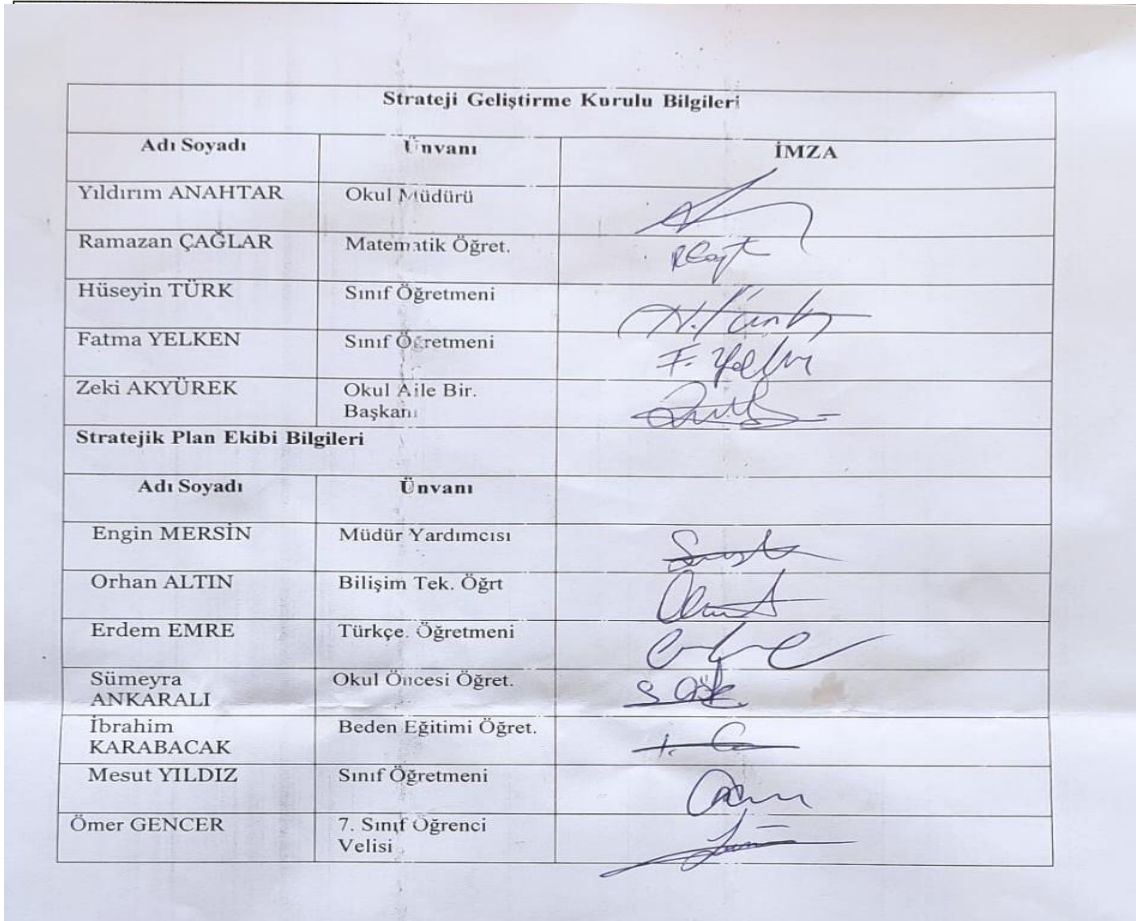 Strateji Geliştirme Kurulu Bilgileri
Adı Soyadı Ünvanı İMZA
Yıldırım ANAHTAR Okul Müdürü
Ramazan ÇAĞLAR Matematik Öğret.
Hüseyin TÜRK Sınıf Öğretmeni
Fatma YELKEN Sınıf Öğretmeni
F.
Zeki AKYÜREK Okul Aile Bir.
Başkanı
Stratejik Plan Ekibi Bilgileri
Adı Soyadı Ünvanı
Engin MERSİN Müdür Yardımcısı
Orhan ALTIN Bilişim Tek. Öğrt
Erdem EMRE Türkçe. Öğretmeni
Sümeyra Okul Öncesi Öğret.
ANKARALI
İbrahim Beden Eğitimi Öğret.
KARABACAK
Mesut YILDIZ Sınıf Öğretmeni
Ömer GENCER 7. Sınıf Öğrenci
Velisi